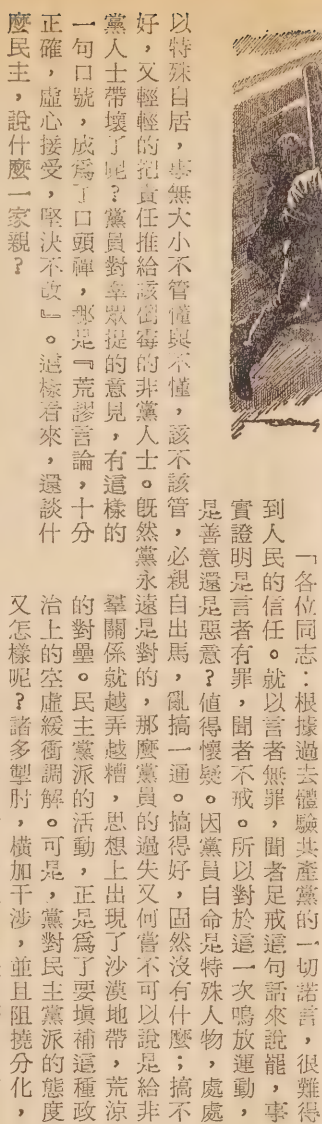 「各位同志：根據過去體驗共產黨的一切諾言，很難得
到人民的信任。就以言者無罪，聞者足戒這句話來說罷，事
實證明是言者有罪，聞者不戒。所以對於這一次鳴放運動，
是善意還是惡意？值得懷疑。因黨員自命是特殊人物，處處
以特殊自居，事無大小不管懂與不懂，該不該管，必親自出馬，亂搞一通。搞得好，固然沒有什麼；搞不
好，又輕輕的把責任推給該倒霉的非黨人士。既然黨永遠是對的，那麼黨員的過失又何嘗不可以說是給非
黨人士帶壞了呢？黨員對羣眾提的意見，有這樣的
一句口號，成爲了口頭禪，那是『荒謬言論，十分
正確，虛心接受，堅決不改』。這樣看來，還談什
麼民主，說什麼一家親？
羣關係就越弄越糟，思想上出現了沙漠地帶，荒涼
的對壘。民主黨派的活動，正是爲了要填補這種政
治上的空虛緩衝調解。可是，黨對民主黨派的態度
又怎樣呢？諸多掣肘，橫加干涉，並且阻撓分化，